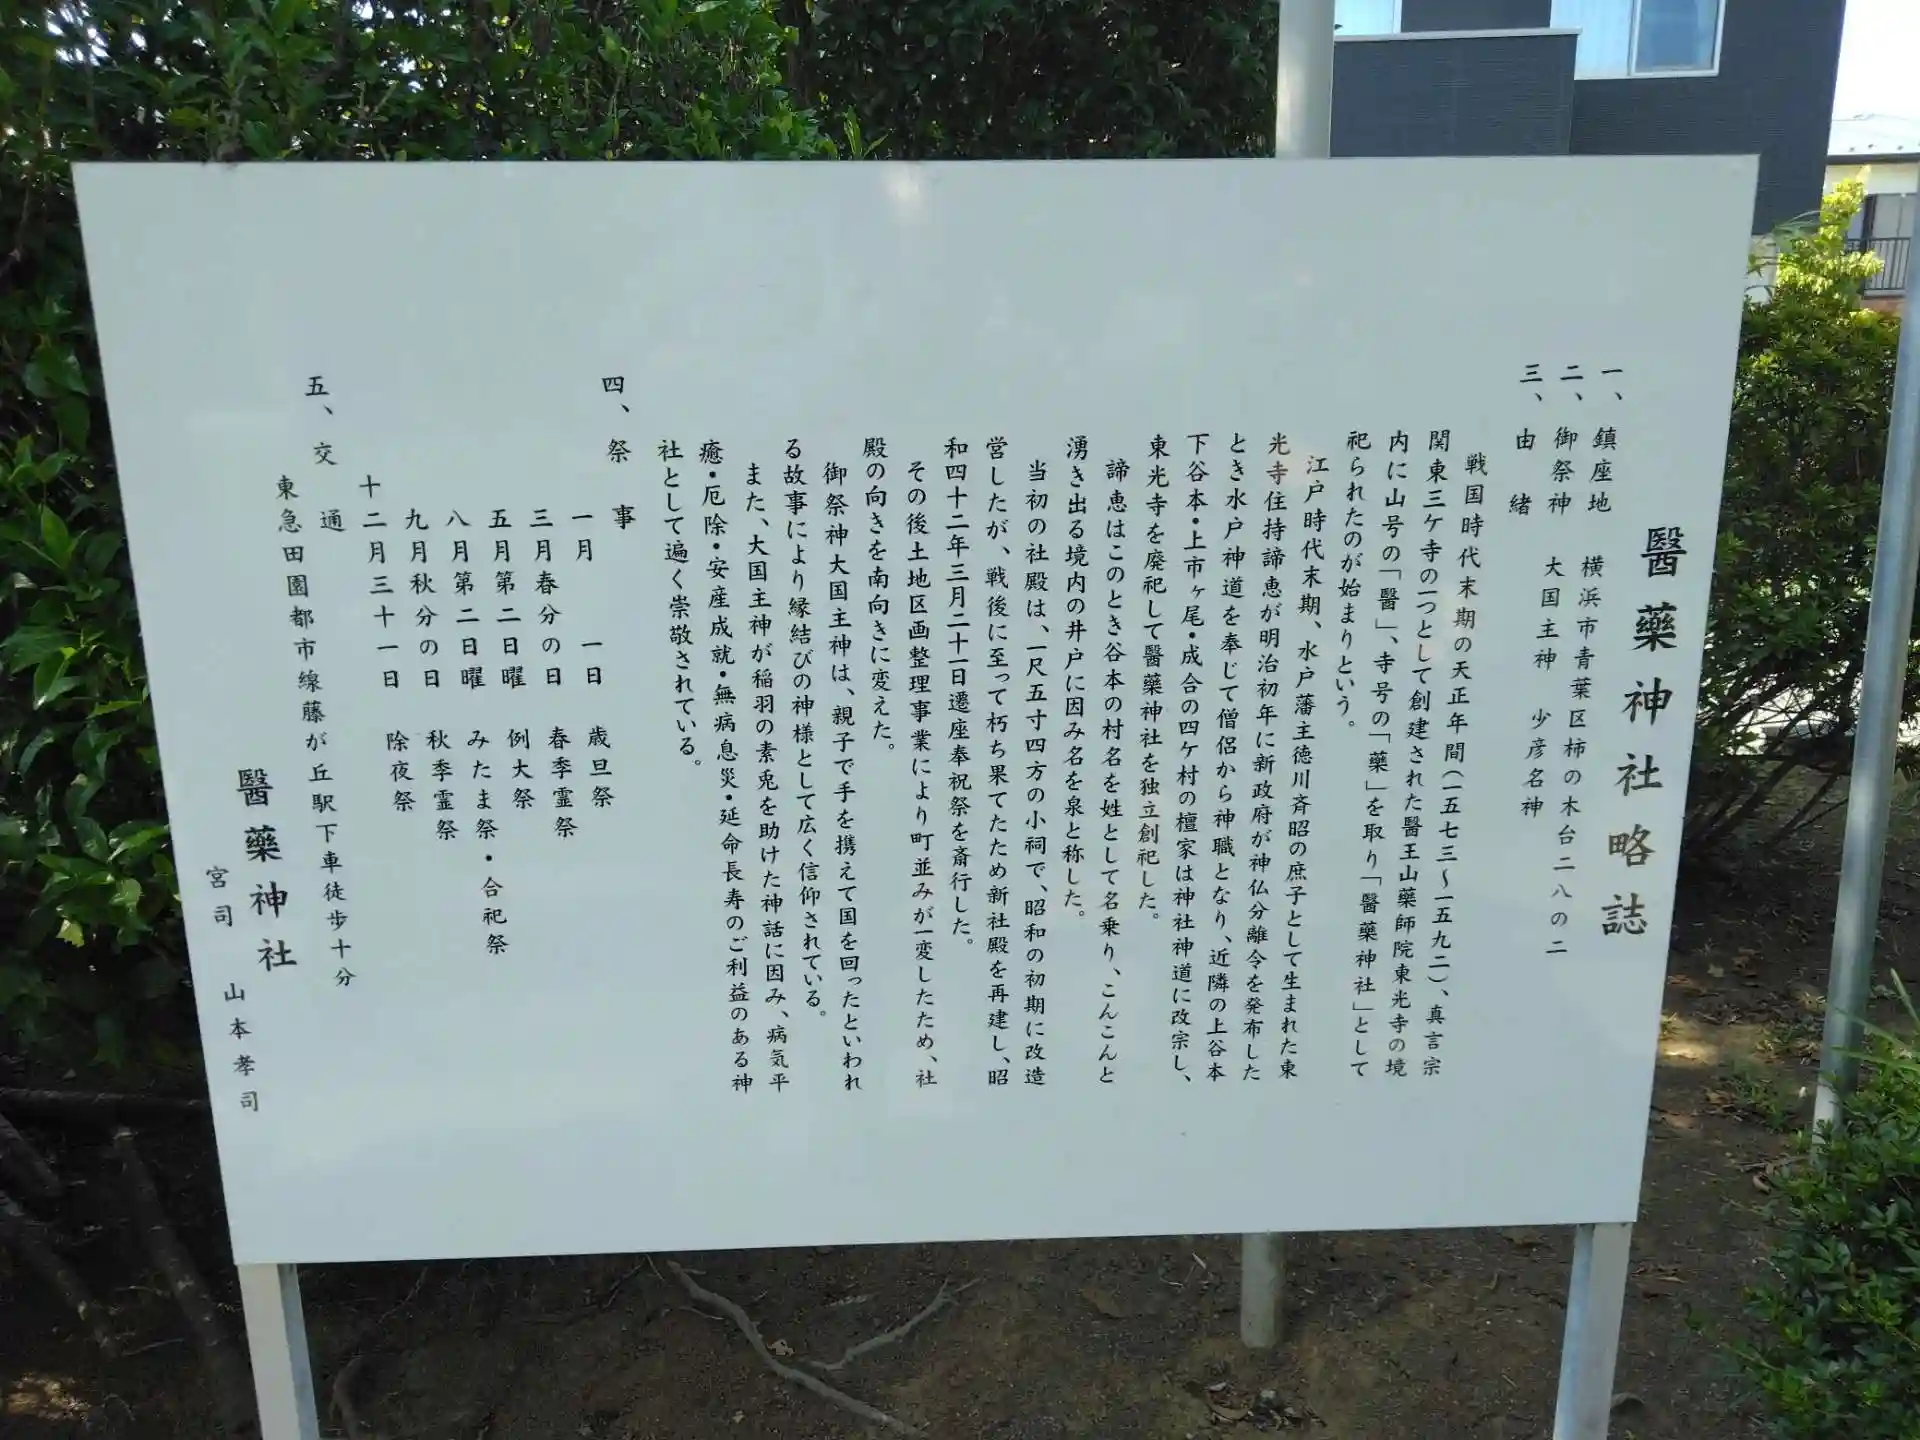 醫藥神社略誌
一、鎮座地　横浜市青葉区柿の木台二八の二
二、御祭神　大国主神　少彦名神
三、由　緒
戦国時代末期の天正年間（一五七三～一五九二）、真言宗
関東三ケ寺の一つとして創建された醫王山藥師院東光寺の境
内に山号の「醫」、寺号の「藥」を取り「醫藥神社」として
祀られたのが始まりという。
江戸時代末期、水戸藩主徳川斉昭の庶子として生まれた東
光寺住持諦恵が明治初年に新政府が神仏分離令を発布した
とき水戸神道を奉じて僧侶から神職となり、近隣の上谷本
下谷本・上市ヶ尾・成合の四ケ村の檀家は神社神道に改宗し、
東光寺を廃祀して醫藥神社を独立創祀した。
諦恵はこのとき谷本の村名を姓として名乗り、こんこんと
湧き出る境内の井戸に因み名を泉と称した。
当初の社殿は、一尺五寸四方の小祠で、昭和の初期に改造
営したが、戦後に至って朽ち果てたため新社殿を再建し、昭
和四十二年三月二十一日遷座奉祝祭を斎行した。
その後土地区画整理事業により町並みが一変したため、社
殿の向きを南向きに変えた。
御祭神大国主神は、親子で手を携えて国を回ったといわれ
る故事により縁結びの神様として広く信仰されている。
また、大国主神が稲羽の素兎を助けた神話に因み、病気平
癒・厄除・安産成就・無病息災・延命長寿のご利益のある神
社として遍く崇敬されている。
四、祭　事
一月　　一日　歳旦祭
三月春分の日　春季霊祭
五月第二日曜　例大祭
八月第二日曜　みたま祭・合祀祭
九月秋分の日　秋季霊祭
十二月三十一日　除夜祭
五、交　通
東急田園都市線藤が丘駅下車徒歩十分
醫藥神社
宮司　山本孝司